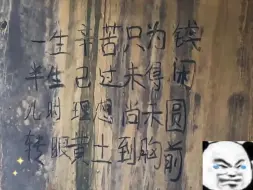 一生辛苦只为钱
半生已过未得闲
儿时理想尚未圆
转眼黄土到胸前